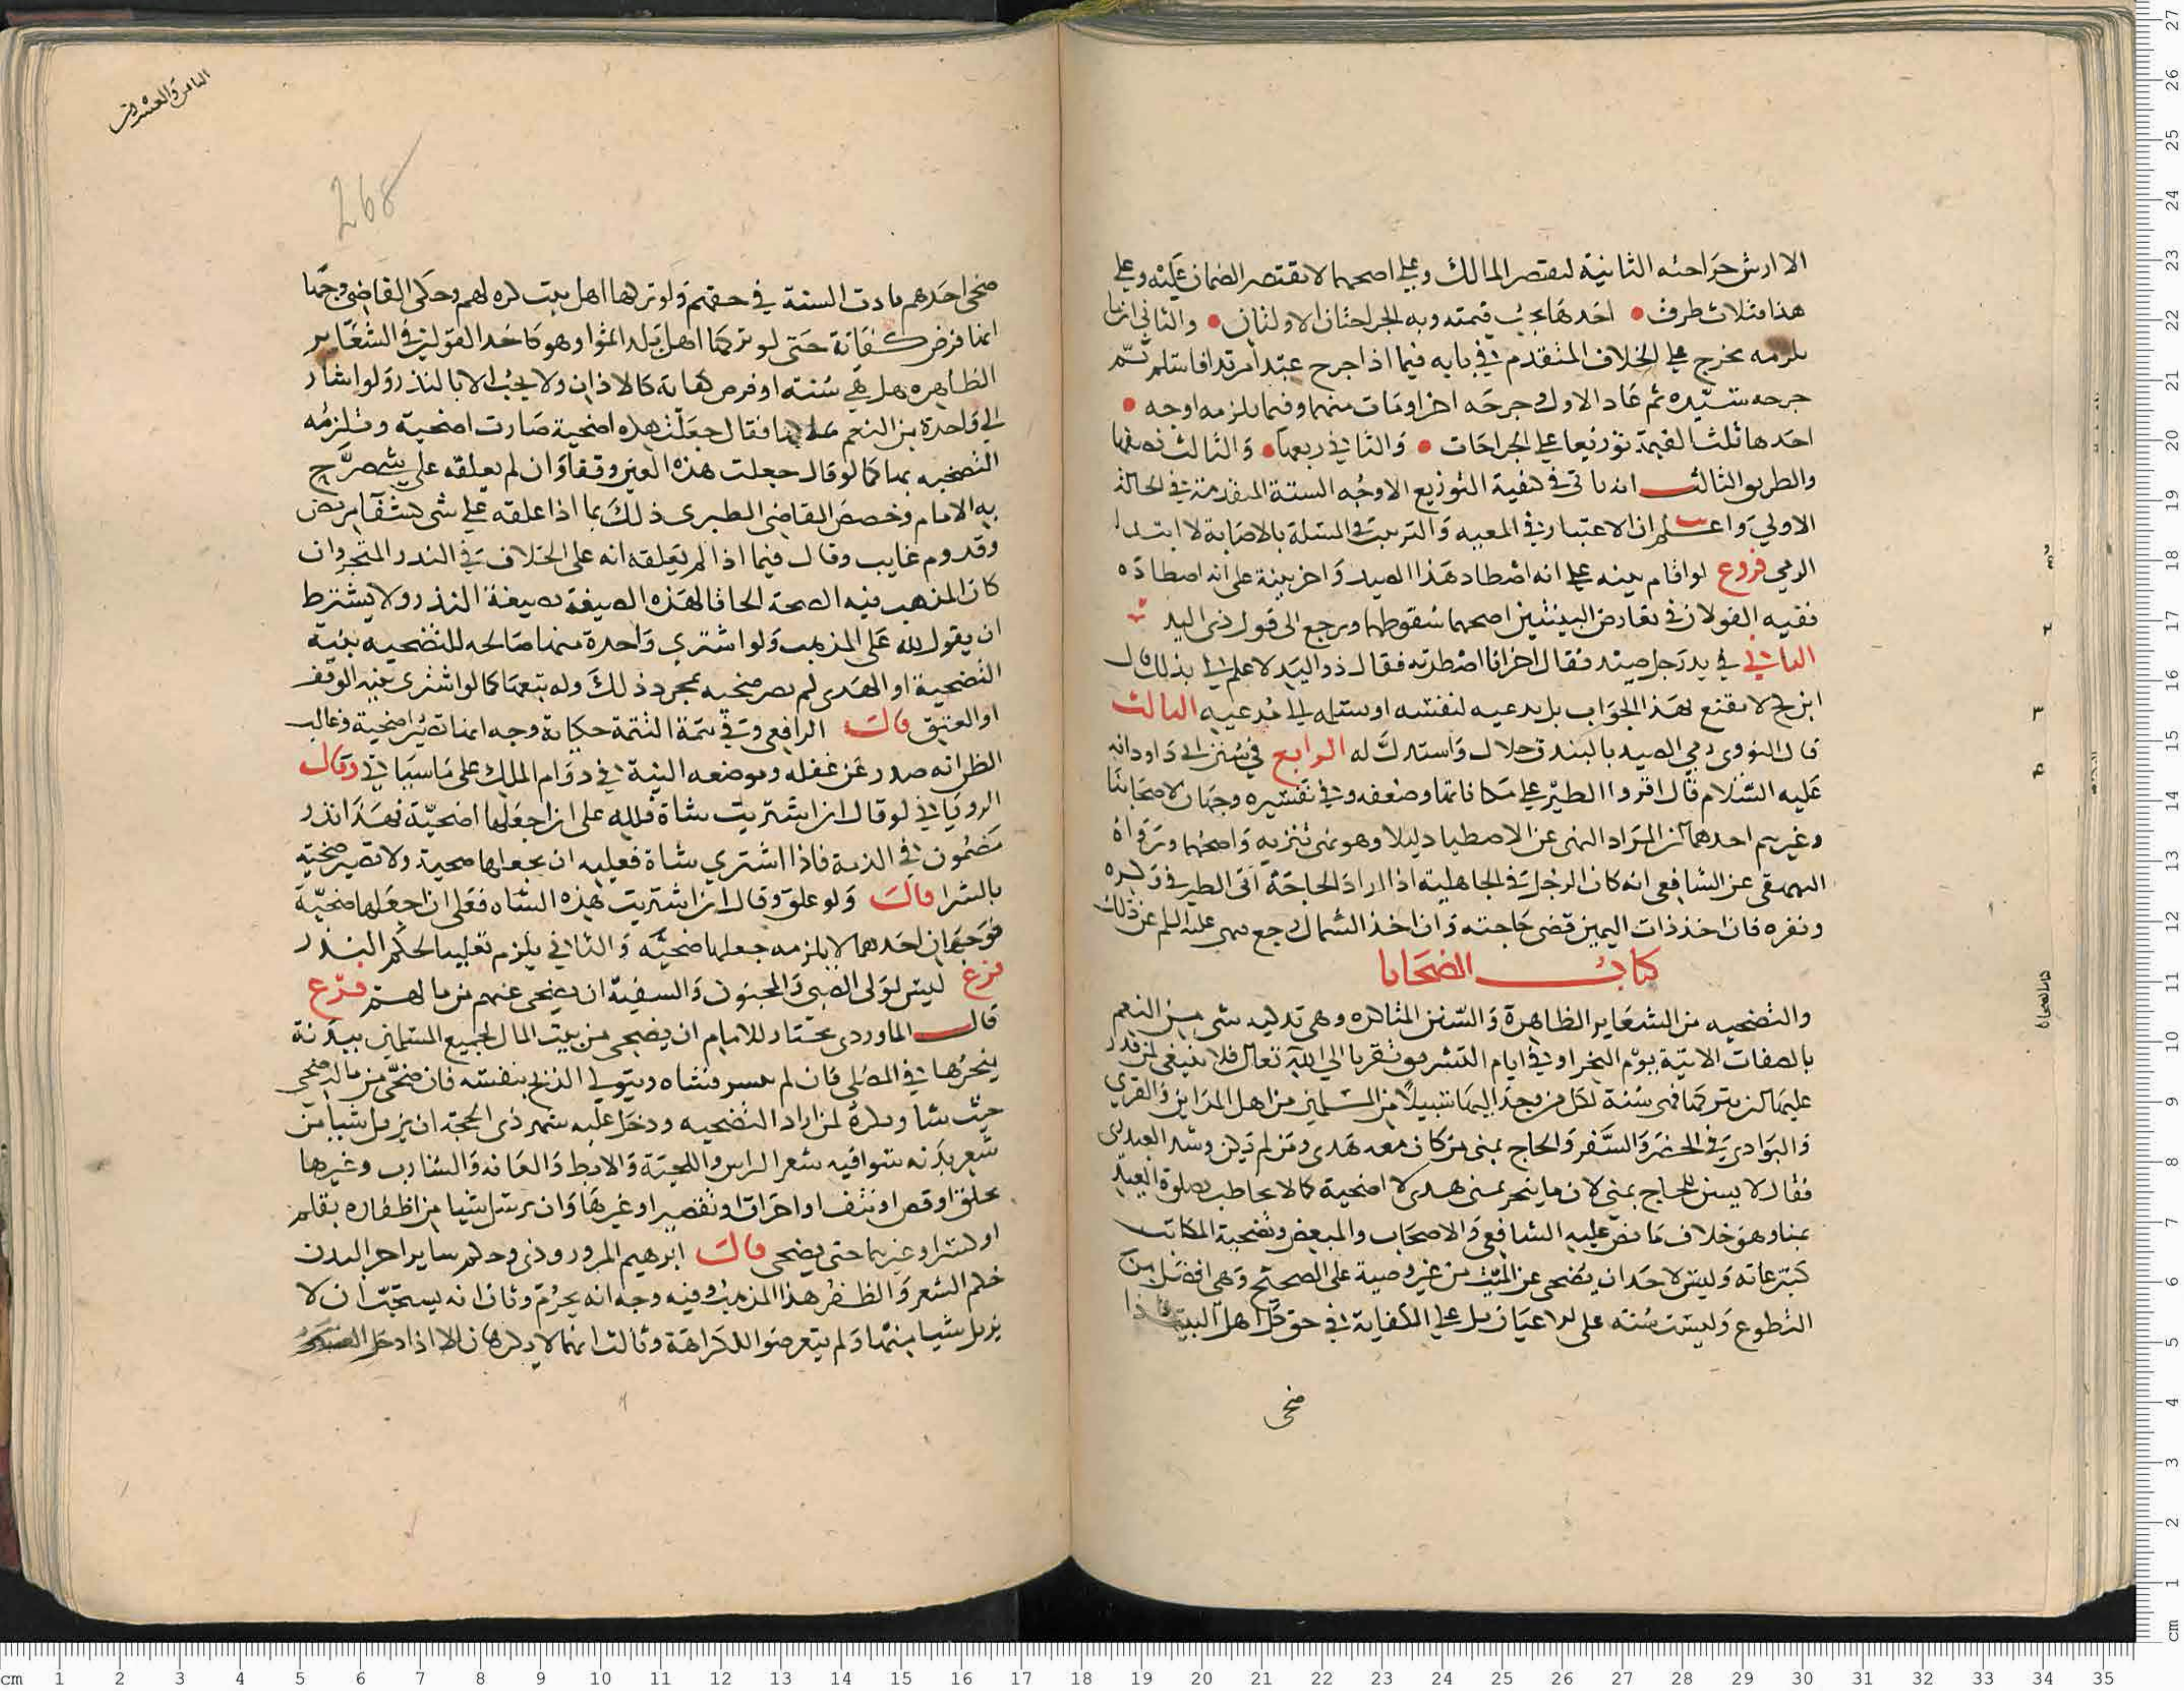 الا ارش جراحته الثانية لتقصير المالك وعلى اصحهما لا يقتصر الضمان عليه وعلى
هذا فثلاث طرف • احدها يجب قيمته وبه الجراحتان الاولتان • والثاني انما
يلزمه يخرج على الخلاف المتقدم في بابه فيما اذا جرح عبد امرتدا فاسلم ثم
جرحه سيده ثم عاد الاول وجرحه اخر ومات منها وفيما يلزمه اوجه •
احدها ثلثا القيمة توزيعا على الجراحات • والثاني ربعها • والثالث نصفها
والطريق الثالث انه ياتي في كيفية التوزيع الاوجه الستة المتقدمة في الحالة
الاولي واعلم ان الاعتبار في المعيه والترتيب في المسئلة بالاصابة لا ابتدا
الرمي فروع لو اقام بينه على انه اصطاد هذا الصيد واخر بينة على انه اصطاده
ففيه القولان في تعارض البينتين اصحهما سقوطهما ويرجع الى قول ذي اليد
الثاني في يد رجل صيد فقال اخر انا اصطدته فقال ذو اليد لا علم لي بذلك قال
ابن كج لا يقنع بهذا الجواب بل يدعيه لنفسه او يسلمه الى مدعيه الثالث
قال النووي رمي الصيد بالبندق حلال واستدرك له الرابع في سنن ابي داود انه
عليه السلام قال اقروا الطير على مكاناتها وضعفه وفي تفسيره وجهان لاصحابنا
وغيرهم احدهما ان المراد النهي عن الاصطياد ليلا وهو نهي تنزيه واصحهما ورواه
البيهقي عن الشافعي انه كان الرجل في الجاهلية اذا اراد الحاجة اتى الطير في وكره
ونفره فان اخذ ذات اليمين قضى حاجته وان اخذ الشمال رجع نهى عليه السلم عن ذلك
كتاب الضحايا
والتضحيه من الشعاير الظاهرة والسنن المتاكده وهي تذكيه شي من النعم
بالصفات الاتية يوم النحر او في ايام التشريق تقربا الي الله تعالى فلا ينبغي لمن قدر
عليها ان يتركها فهى سنة لكل من وجد اليها سبيلا من المسلمين من اهل المداين والقري
والبوادي في الحضر والسفر والحاج بمنى من كان معه هدي ومن لم يكن وشذ العبدري
فقال لا يسن للحاج بمنى لان ما ينحر بمنى هدى لا اضحية كما لا يخاطب بصلوة العيد
بمنا وهو خلاف ما نص عليه الشافعي والاصحاب والمبعض وتضحية المكاتب
كتبرعاته وليس لاحد ان يضحى عن الميت من غير وصية على الصحيح وهي افضل من
التطوع وليست سنته على الاعيان بل على الكفاية في حق كل اهل البيت فاذا
ضحى
الثامن والعشرون
268
ضحى احدهم تادت السنة في حقهم ولو تركها اهل بيت كره لهم وحكى القاضي وجها
انها فرض كفاية حتى لو تركها اهل بلد اثموا وهو كاحد القولين في الشعاير
الظاهره هل هي سنته او فرض كفايه كالاذان ولا يجب الا بالنذر ولو اشار
الى واحدة من النعم فقال جعلت هذه اضحية صارت اضحية وتلزمه
التضحيه بها كما لو قال جعلت هذه العين وقفا وان لم يعلقه على شي صرح
به الامام وخصص القاضي الطبري ذلك بما اذا علقه على شي كشفا مريض
وقدوم غايب وقال فيما اذا لم يعلقه انه على الخلاف في النذر المنجز وان
كان المذهب فيه الصحة الحاقا لهذه الصيغة بصيغة النذر ولا يشترط
ان يقول لله على المذهب ولو اشتري واحدة منها صالحه للتضحيه بنية
التضحية او الهدى لم يصر ضحيه بمجرد ذلك وله بيعها كما لو اشترى بنية الوقف
او العتق قالت الرافعي وفي تتمة التتمة حكاية وجه انها تصير اضحية وغالب
الظن انه صدر عن غفله وموضعه النية في دوام الملك على ما سياتي وقال
الروياني لو قال ان اشتريت شاة فلله على ان اجعلها اضحية فهذا نذر
مضمون في الذمة فاذا اشتري شاة فعليه ان يجعلها ضحية ولا تصير ضحية
بالشرا قالت ولو علق وقال ان اشتريت هذه الشاه فعلى ان اجعلها ضحية
فوجهان احدهما لا يلزمه جعلها ضحية والثاني يلزم تغليبا لحكم النذر
فرع ليس لولى الصبي والمجنون والسفيه ان يضحى عنهم من مالهم فرع
قال الماوردي يختار للامام ان يضحي من بيت المال لجميع المسلمين ببدنة
ينحرها في المصلى فان لم يتيسر فبشاه ويتولى الذبح بنفسه فان ضحى من ماله ضحى
حيث شا ويكره لمن اراد التضحيه ودخل عليه شهر ذي الحجة ان يزيل شيا من
شعر بدنه سوا فيه شعر الراس واللحية والابط والعانه والشارب وغيرها
بحلق او قص او نتف او احراق او تقصير او غيرها وان يزيل شيا من اظفاره بقلم
او كسر او غيرهما حتى يضحي قالت ابرهيم المروروذي وحكم ساير اجزا البدن
حكم الشعر والظفر هذا المذهب وفيه وجه انه يحرم وثان انه يستحب ان لا
يزيل شيا منهما ولم يتعرضوا للكراهة وثالث انهما لا يكرهان الا اذا دخل